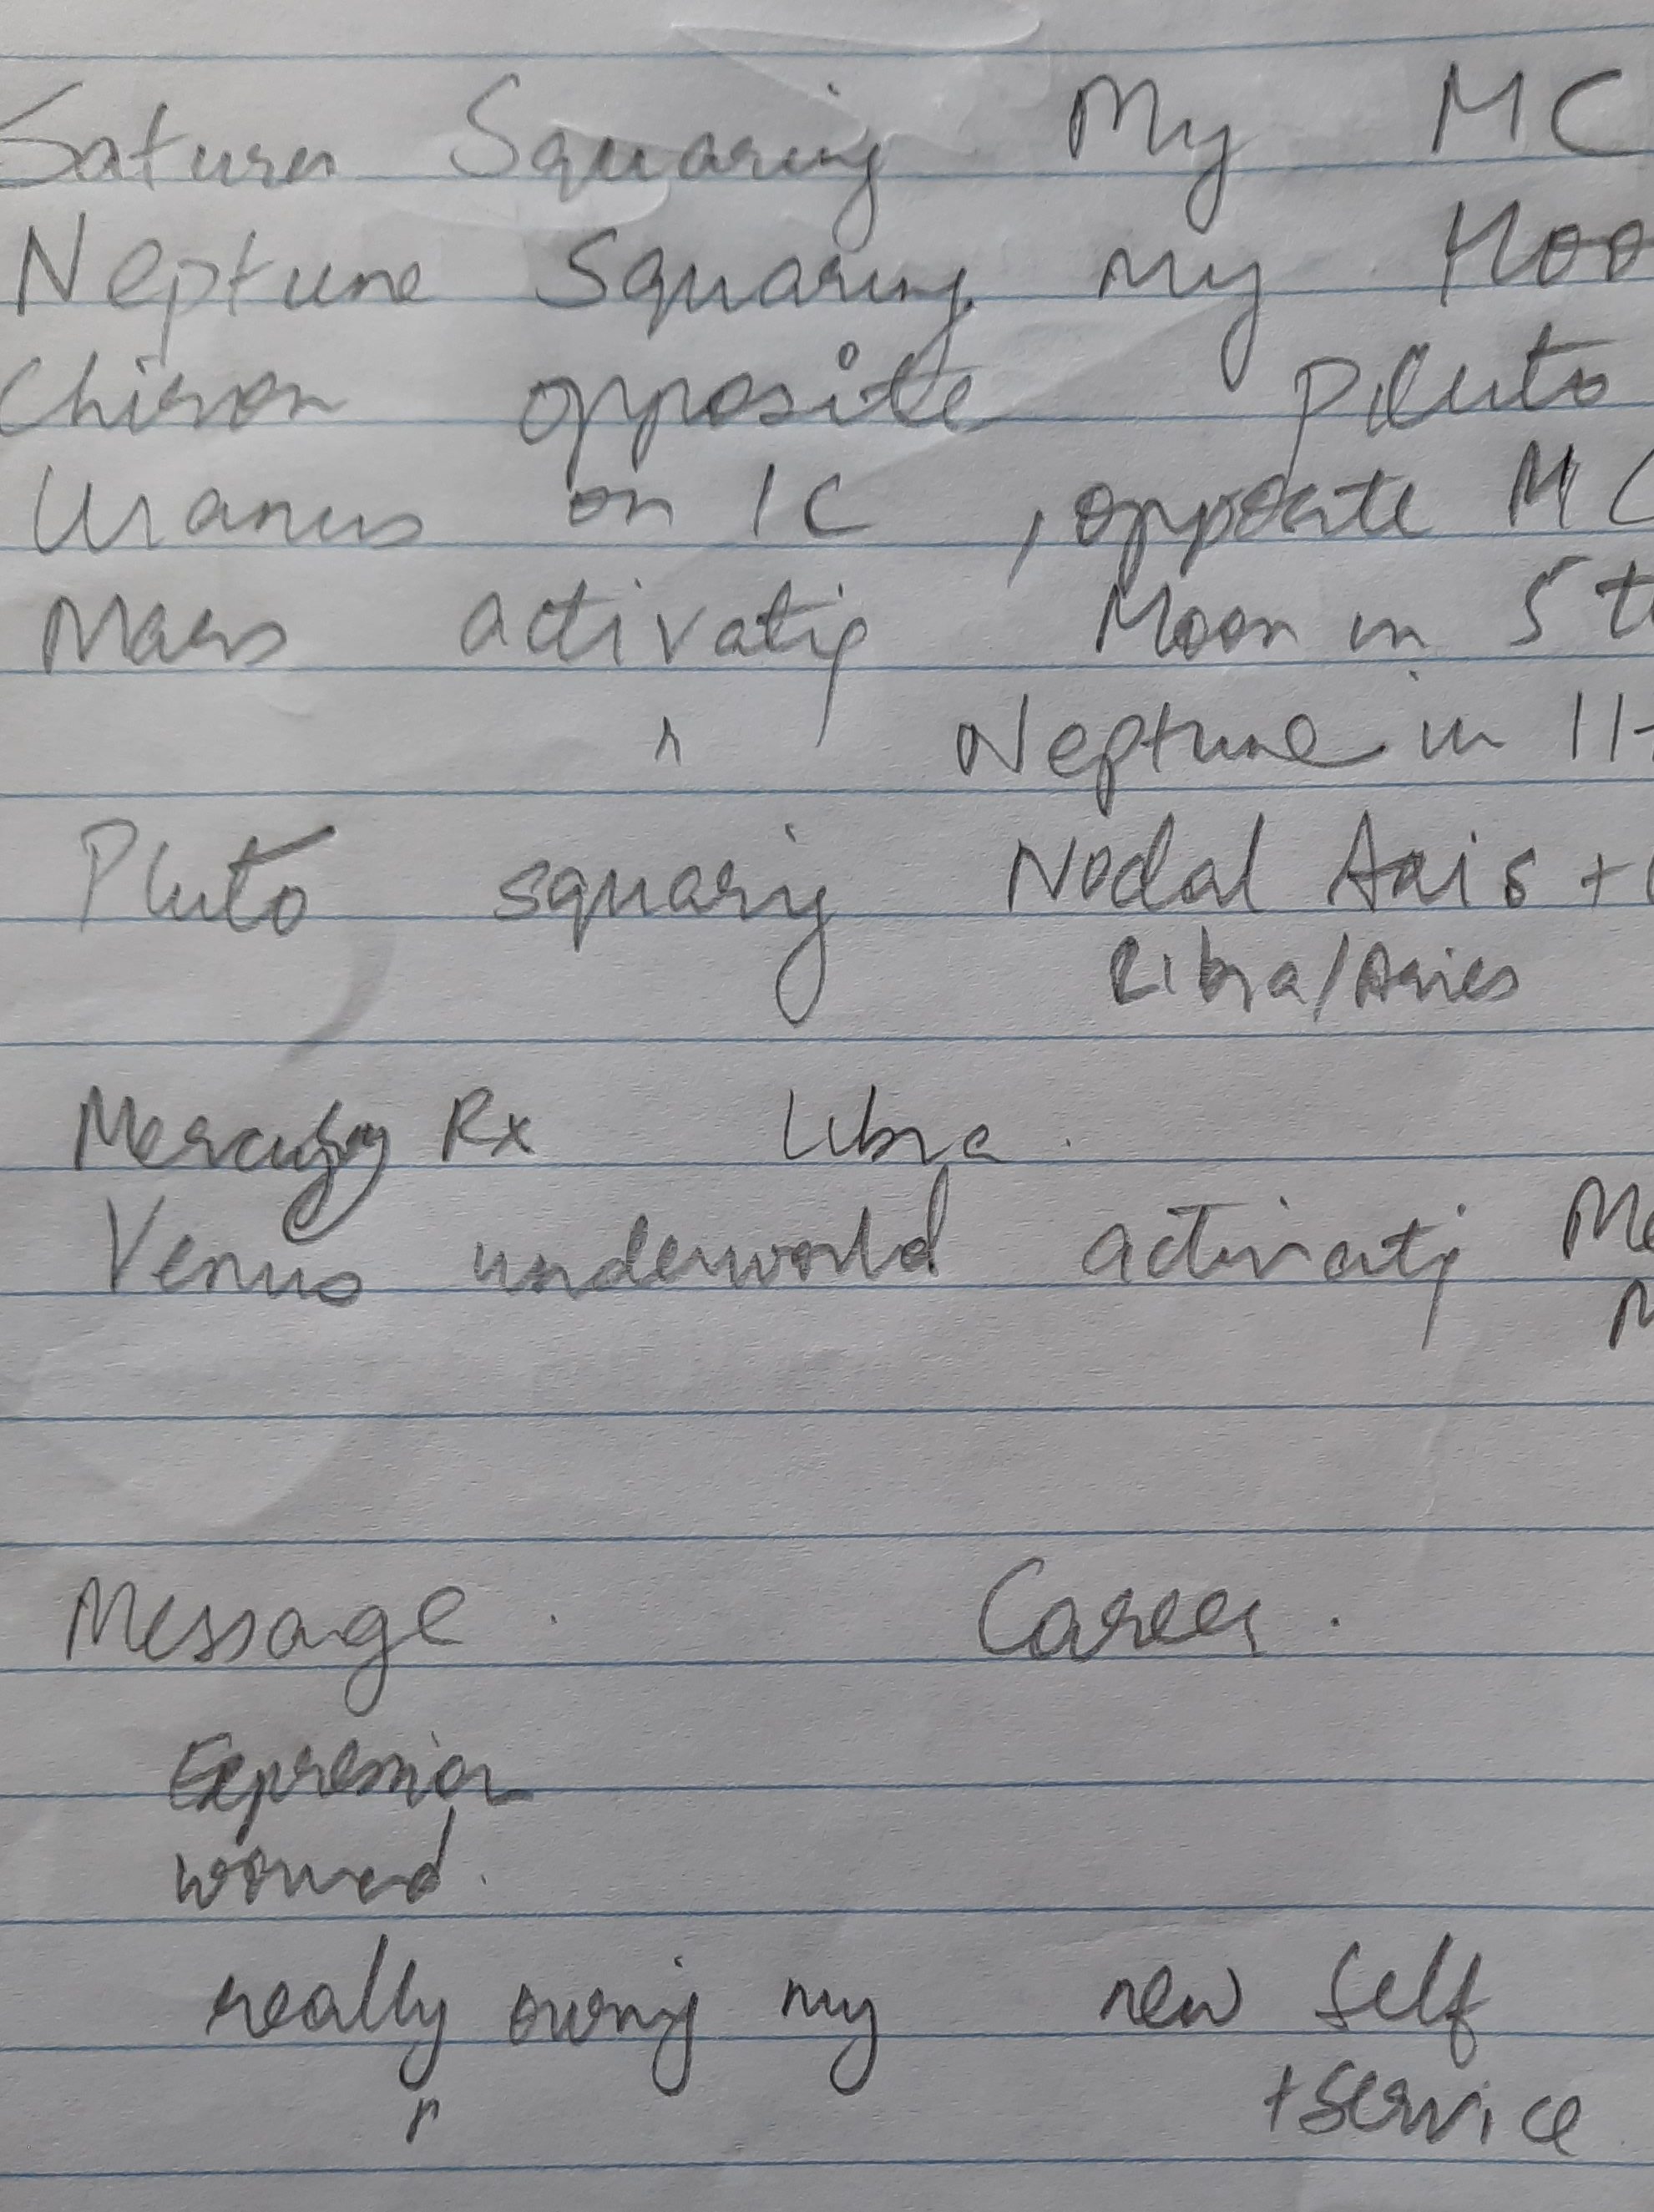 Saturn Squaring My MC
Neptune Squaring my Moo
Chiron opposite Pluto
Uranus on IC, opposite MC
Mars activatig Moon in 5t
" Neptune in 11
Pluto squarig Nodal Axis +
Libra/Aries
Mercury Rx Libra.
Venus underworld activatig Me
M
Message. Career.
Expression
wound.
really owning my new self
" + Service